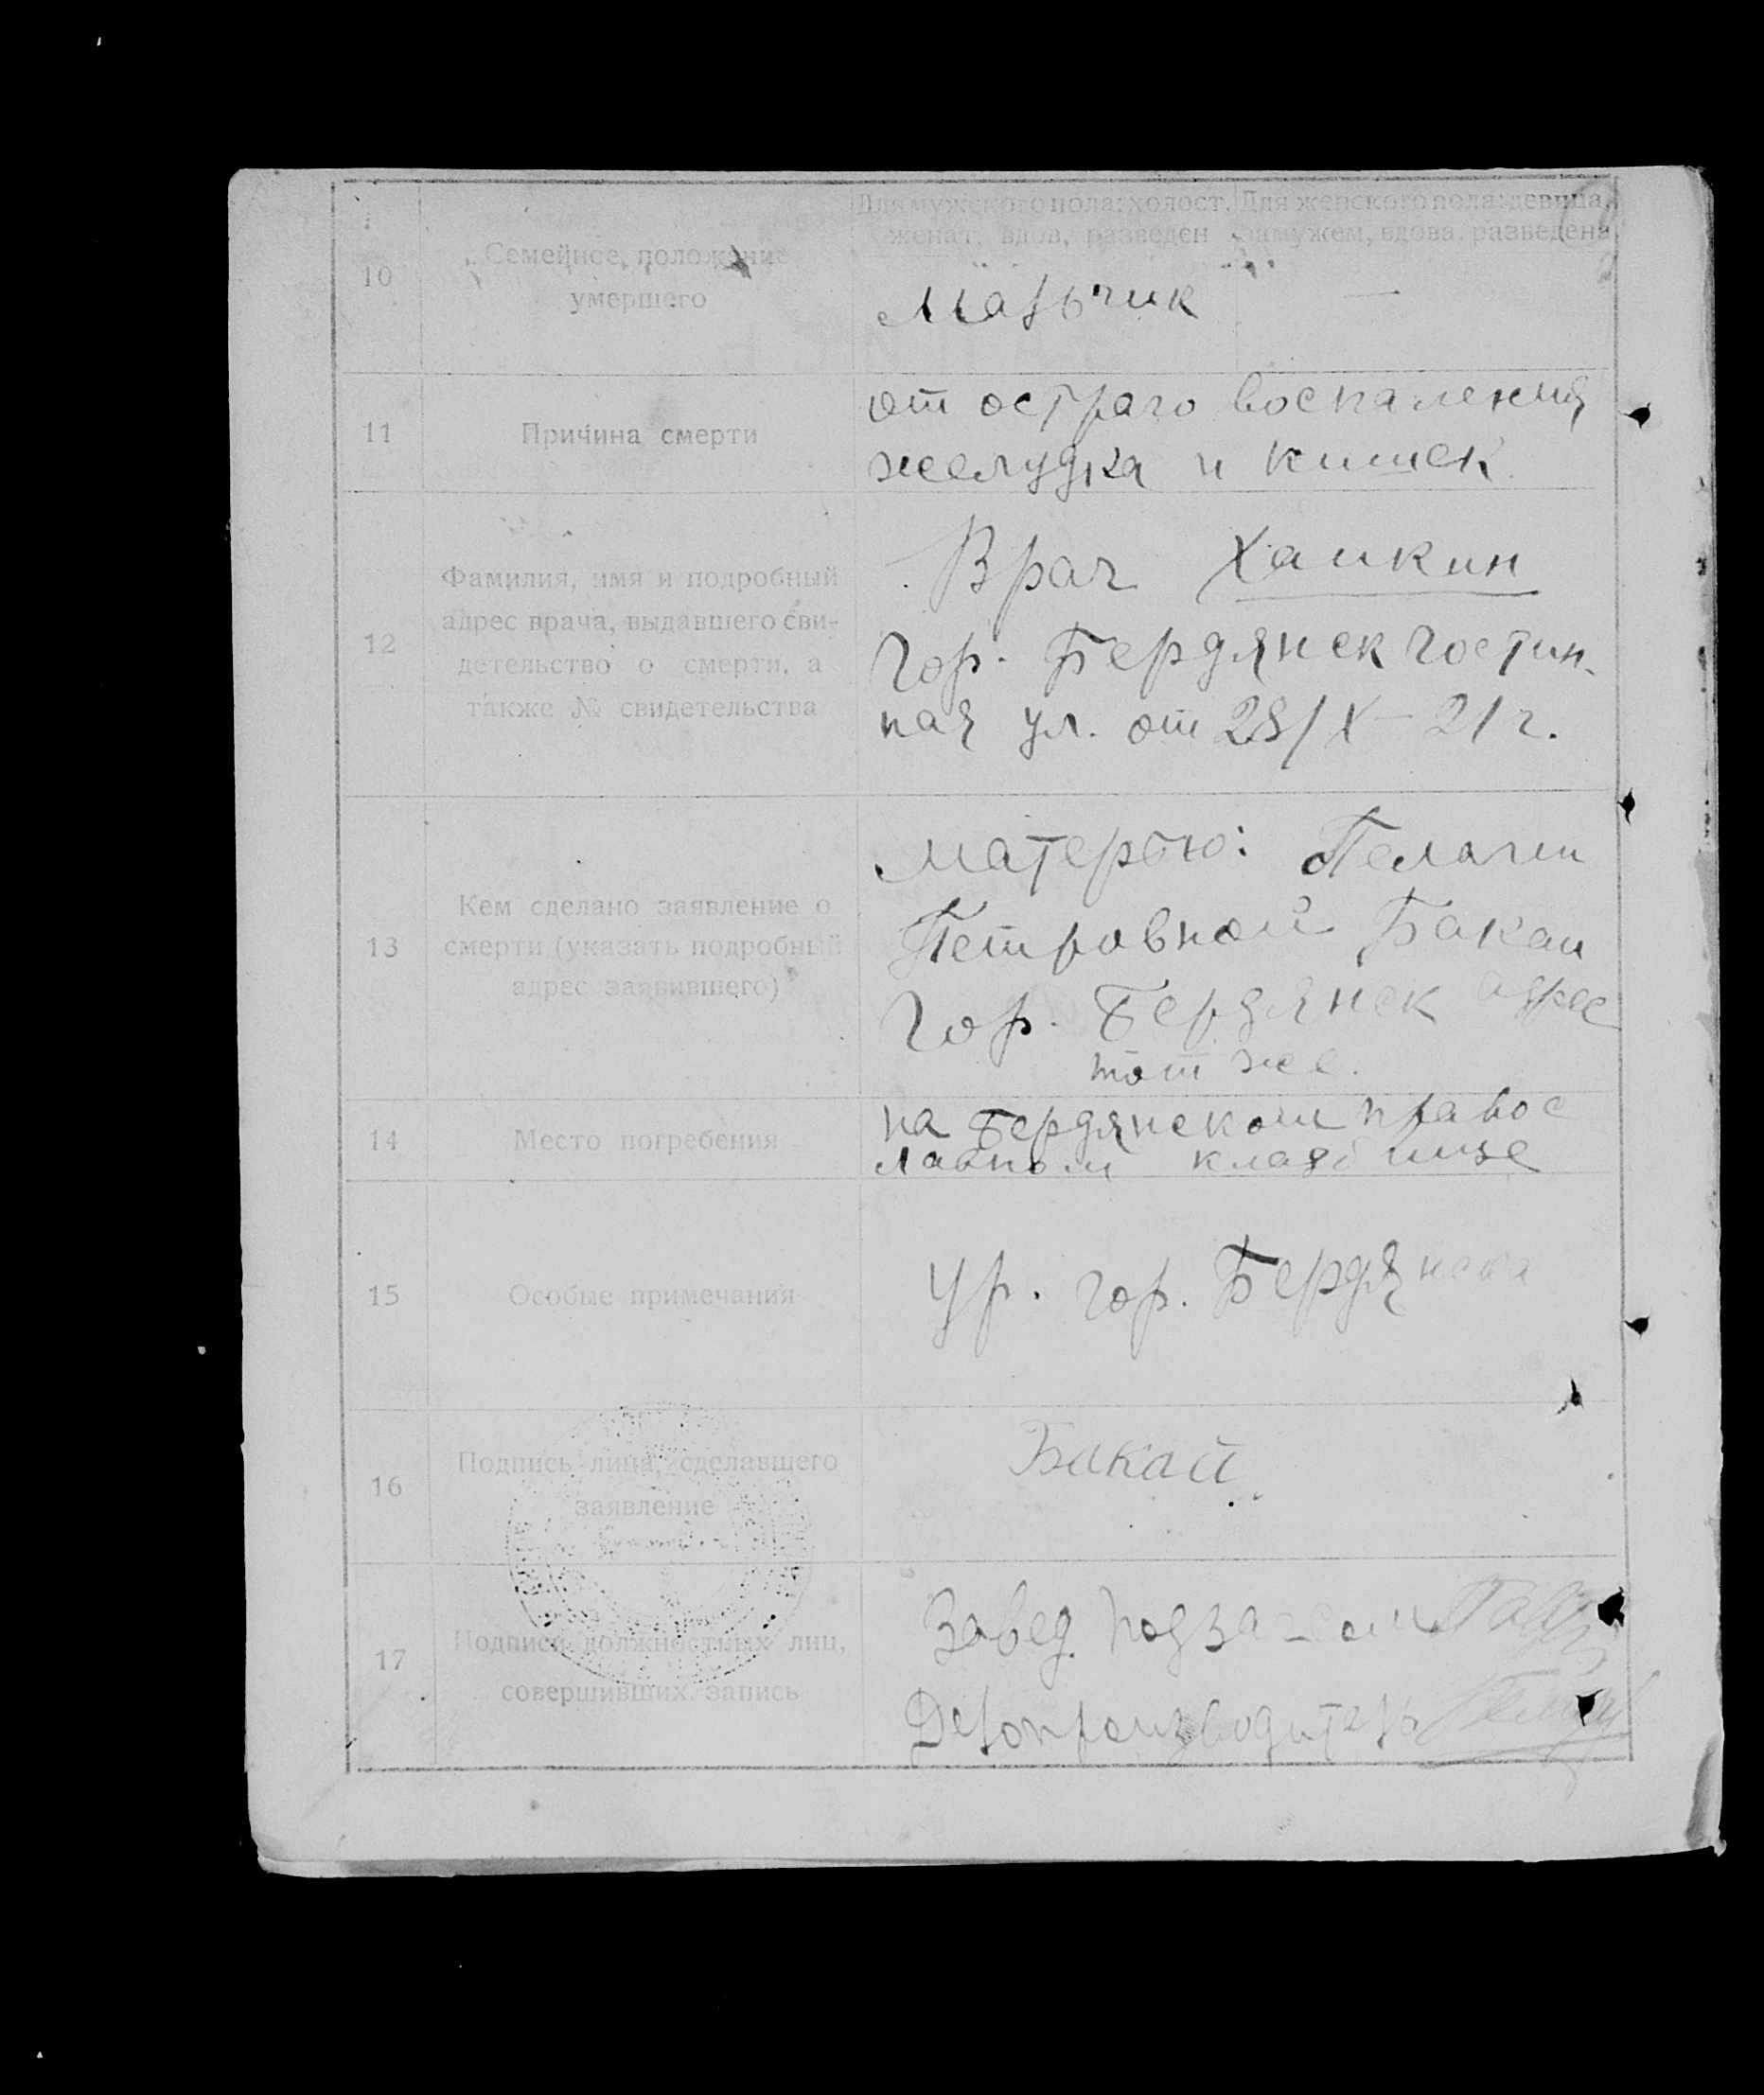 Для мужского пола: холост, женат, вдов, разведен
Для женского пола: девица, замужем, вдова, разведена
10
Семейное положение
умершего
Мальчик
—
11
Причина смерти
от остраго воспаления
желудка и кишек.
12
Фамилия, имя и подробный
адрес врача, выдавшего сви-
детельство о смерти, а
также № свидетельства
Врач Хаикин
Гор. Бердянск Гостин-
ная ул. от 28/X – 21 г.
13
Кем сделано заявление о
смерти (указать подробный
адрес заявившего)
матерью: Пелагии
Петровной Бакаи
Гор. Бердянск адрес
тот же.
14
Место погребения
на Бердянском правос
лавном кладбище
15
Особые примечания
Ур. гор. Бердянска
16
Подпись лица, сделавшего
заявление
Бакай
17
Подписи должностных лиц,
совершивших запись
Завед.
Делопроизводитель